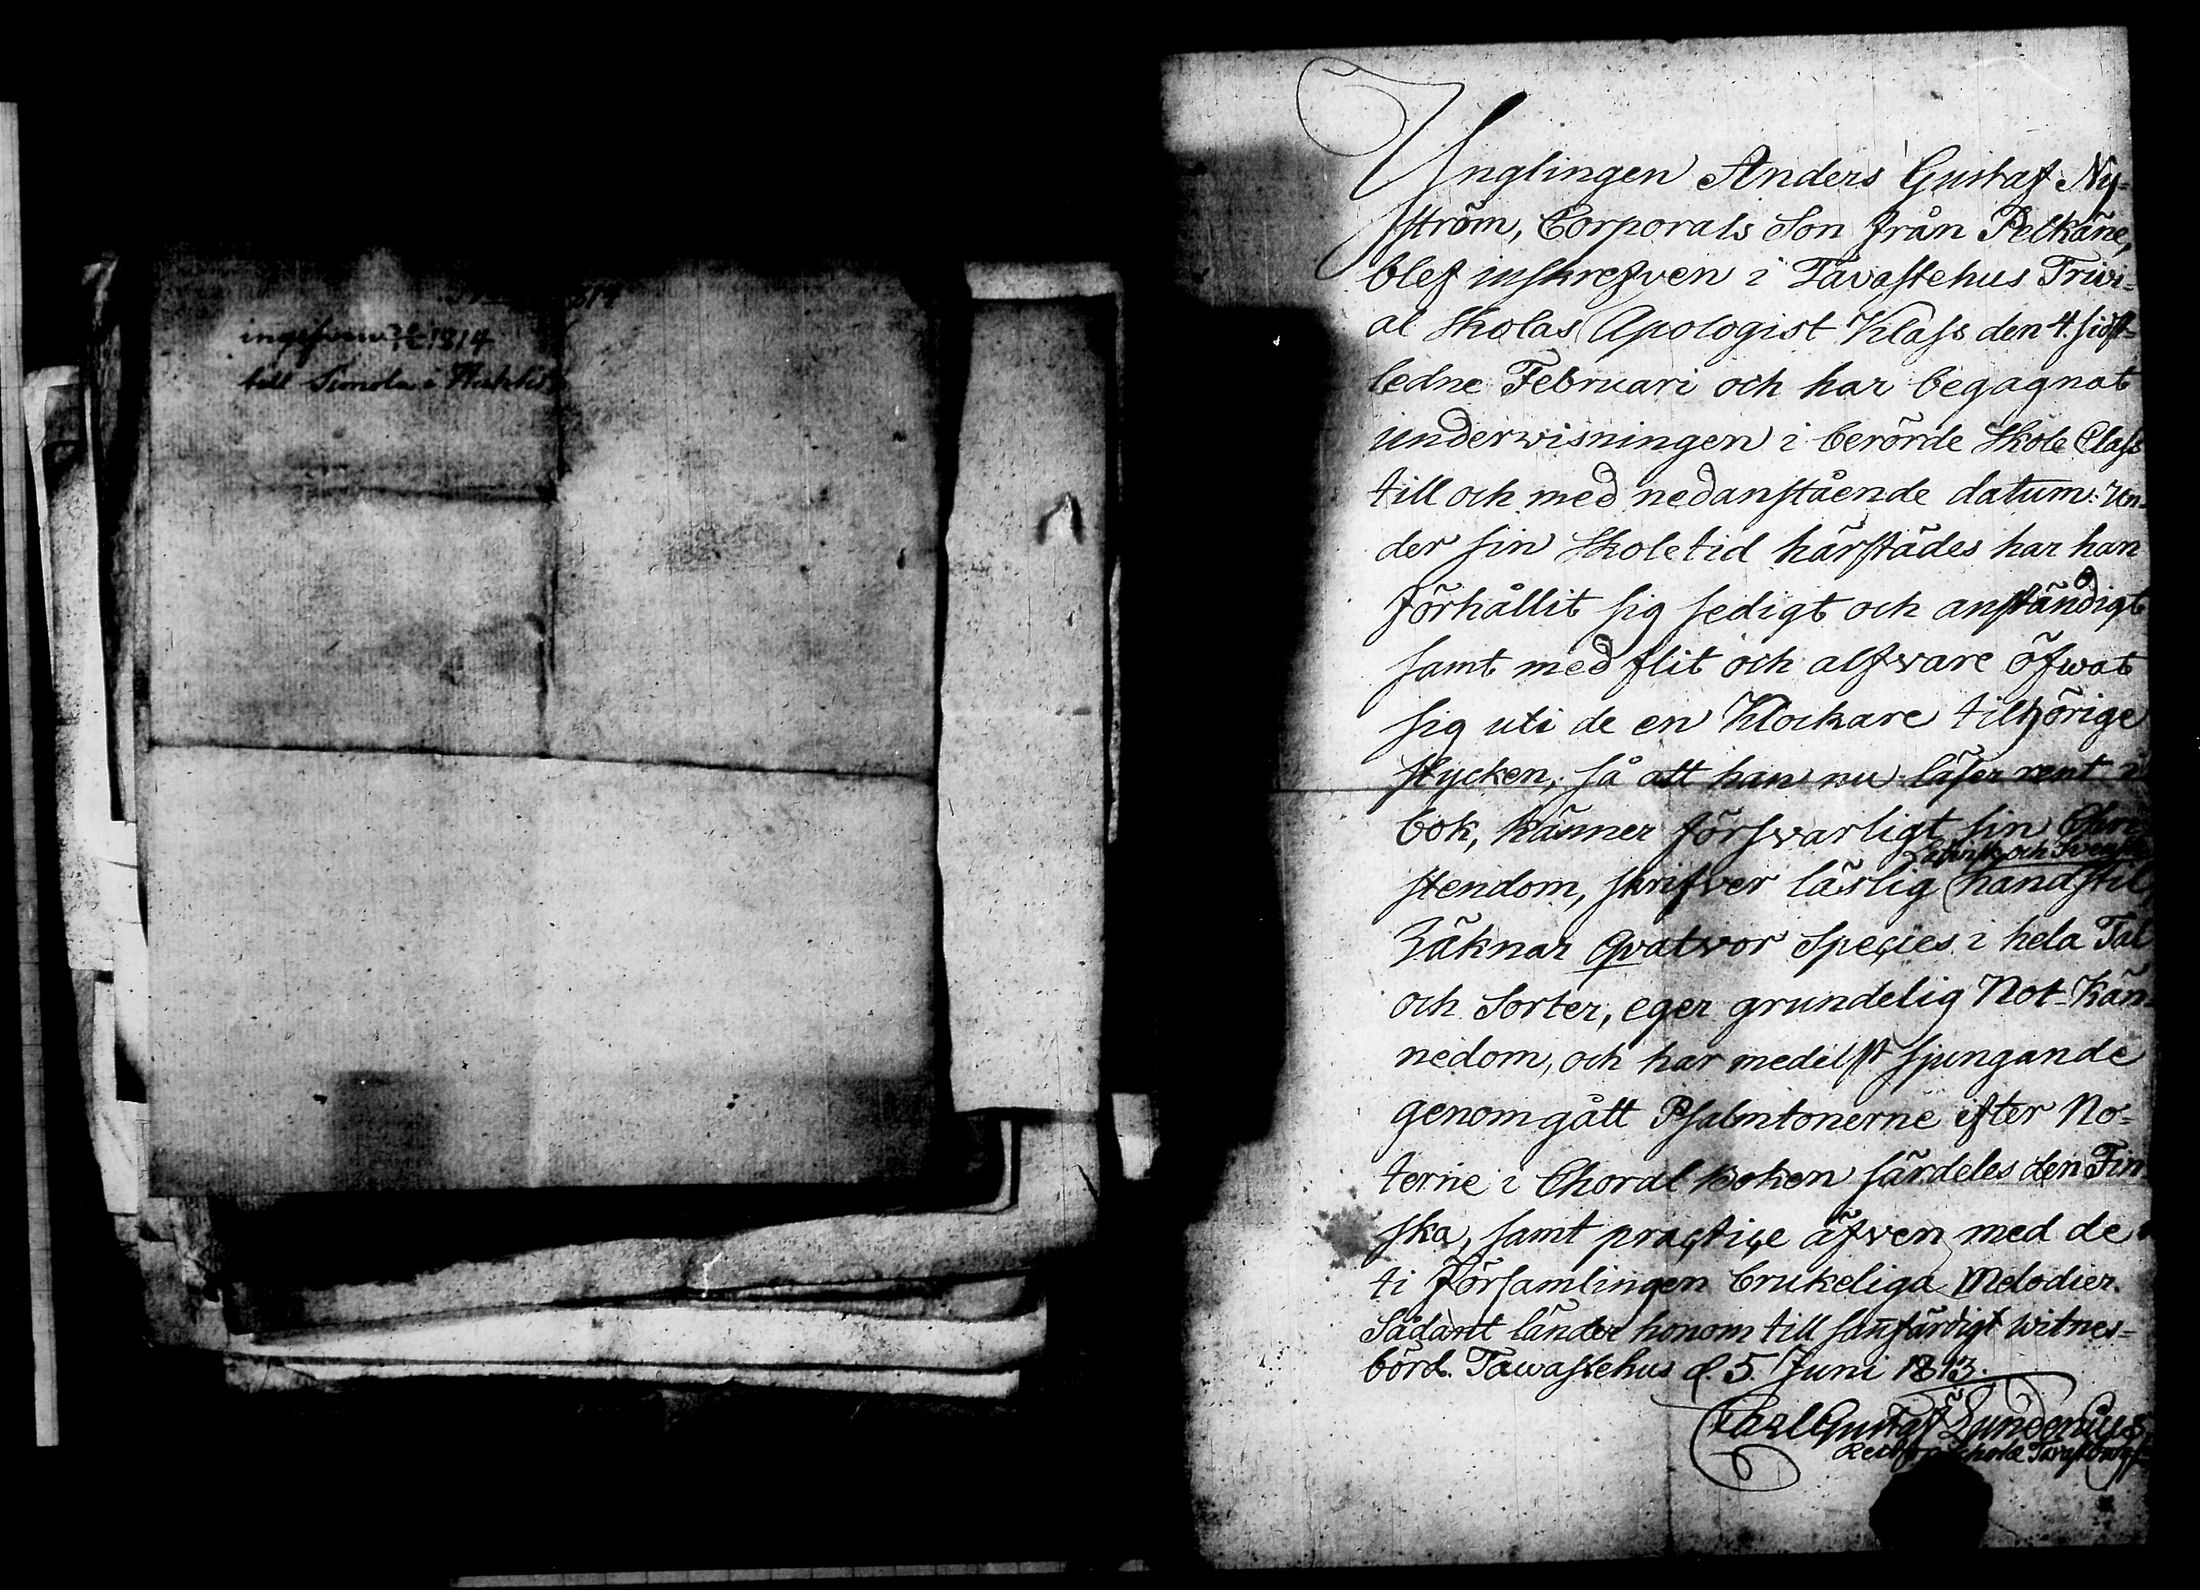 1814
till Simola i
Ynglingen Anders Gustaf Ny-
ström, Corporals Son från Pelkäne,
blef inskrefven i Tavastehus Trivi-
al Skolas Apologist Klass den 4. sidst-
ledne Februari och har begagnat
underwisningen i berörde Skole Class
till och med nedanstående datum. Un-
der sin Skoletid härstädes har han
förhållit sig sedigt och anständigt
samt med flit och alfvare öfwat
sig uti de en Klockare tilhörige
stycken, så att han nu läser rent i
bok, känner försvarligt sin Chri-
Latinsk och Svensk
stendom, skrifver läslig handstil,
Räknar Qvatvor Species i hela Tal
och Sorter, eger grundelig Not-Kän-
nedom, och har medelst sjungande
genomgått Psalmtonerne efter No-
terne i Choral Boken särdeles den Fin-
ska, samt practice äfven med de
ti Församlingen brukeliga Melodier.
Sådant länder honom till sanfärdigt witnes-
börd. Tawastehus d. 5. Juni 1813.
Carl Gustaf